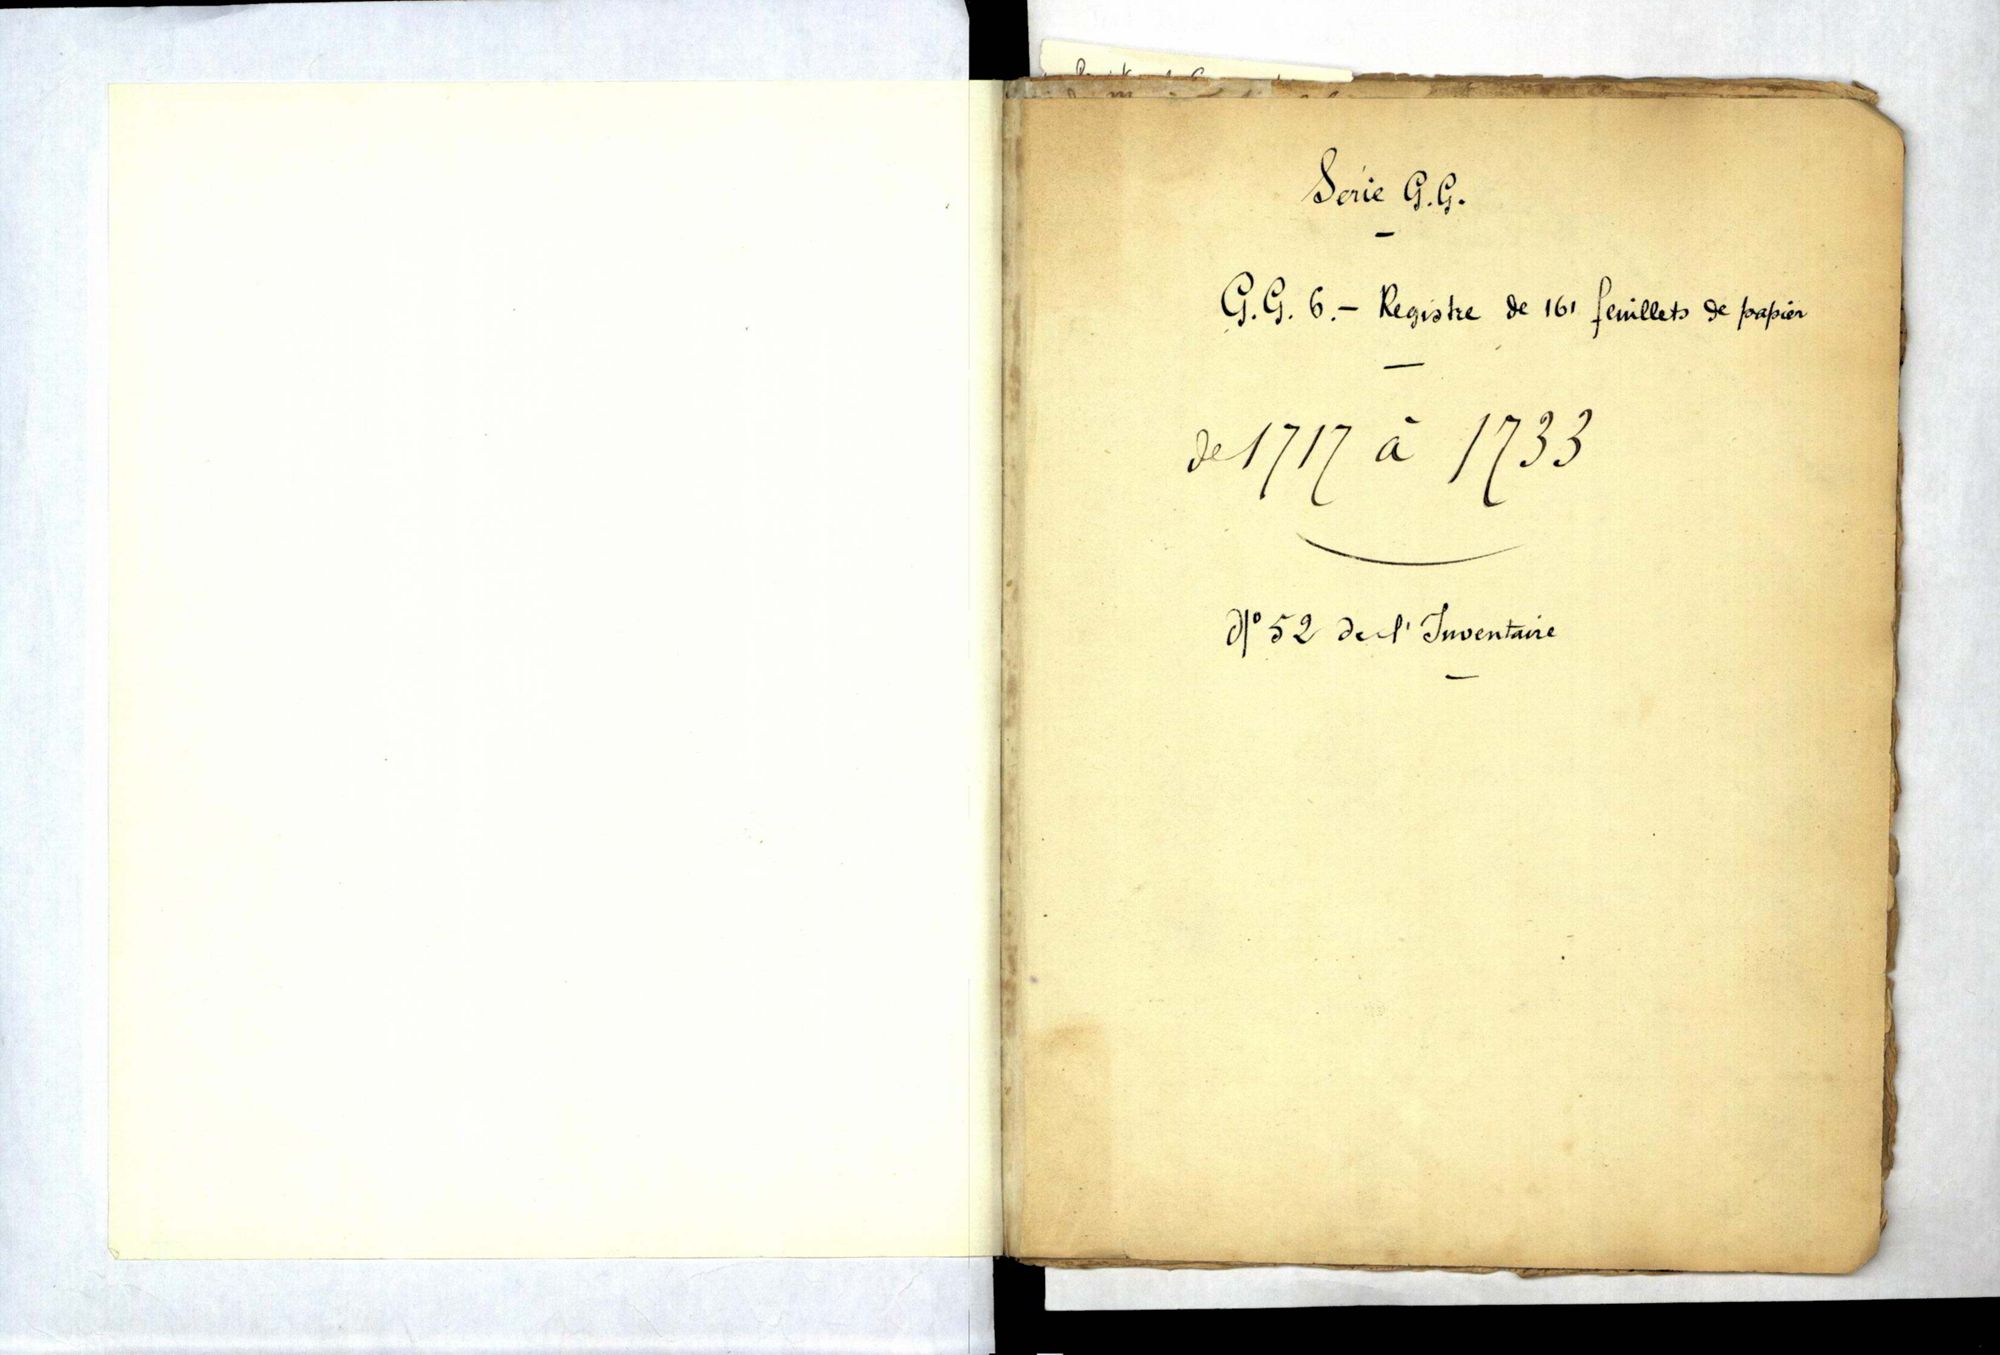 Série G.G.
G.G. 6. — Registre de 161 feuillets de papier
de 1717 à 1733
N° 52 de l'Inventaire